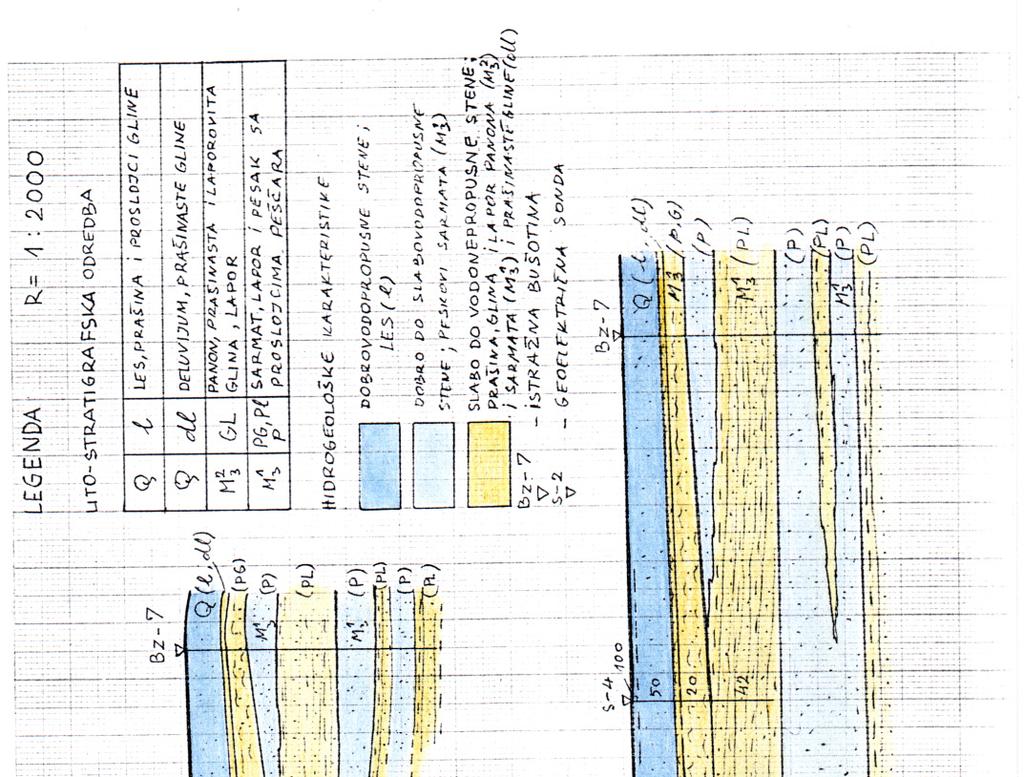 LEGENDA R= 1:2000
LITO-STRATIGRAFSKA ODREDBA
Q l LES, PRAŠINA I PROSLOJCI GLINE
Q dl DELUVIJUM, PRAŠINASTE GLINE
M₃² GL PANON, PRAŠINASTA I LAPOROVITA
GLINA, LAPOR
M₃¹ PG, Pl SARMAT, LAPOR I PESAK SA
P PROSLOJCIMA PEŠČARA
HIDROGEOLOŠKE KARAKTERISTIKE
DOBROVODOPROPUSNE STENE;
LES (l)
DOBRO DO SLABOVODOPROPUSNE
STENE; PESKOVI SARMATA (M₃¹)
SLABO DO VODONEPROPUSNE STENE;
PRAŠINA, GLINA I LAPOR PANONA (M₃²)
I SARMATA (M₃¹) I PRAŠINASTE GLINE (dl)
Bz-7 - ISTRAŽNA BUŠOTINA
S-2 - GEOELEKTRIČNA SONDA
Bz-7
Q (l, dl)
(PG)
M₃¹ (P)
(PL)
M₃¹ (P)
(PL)
(P)
(PL)
S-4 100
50
20
42
Bz-7
Q (l, dl)
M₃¹ (P,G)
(P)
M₃¹ (PL)
(P)
(PL)
M₃¹ (P)
(PL)